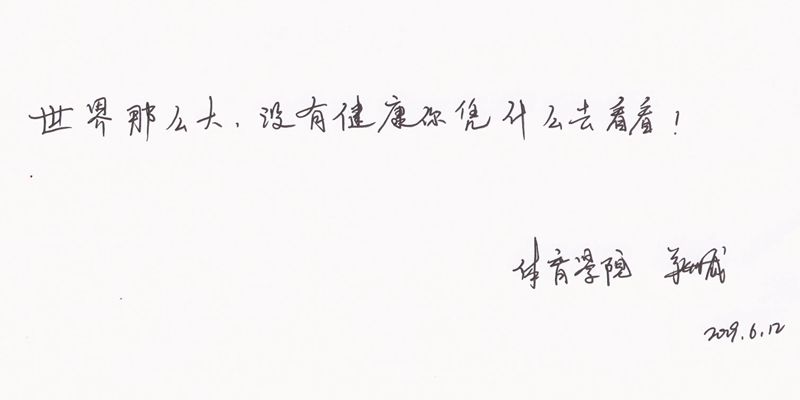 世界那么大,没有健康你凭什么去看看!
体育學院
2019.6.12